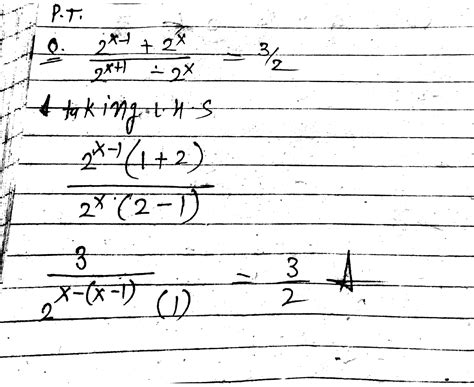 P.T.
Q. (2^(x-1) + 2^x) / (2^(x+1) - 2^x) = 3/2
taking L H S
2^(x-1) (1+2) / 2^x · (2-1)
3 / 2^(x-(x-1)) (1) = 3/2